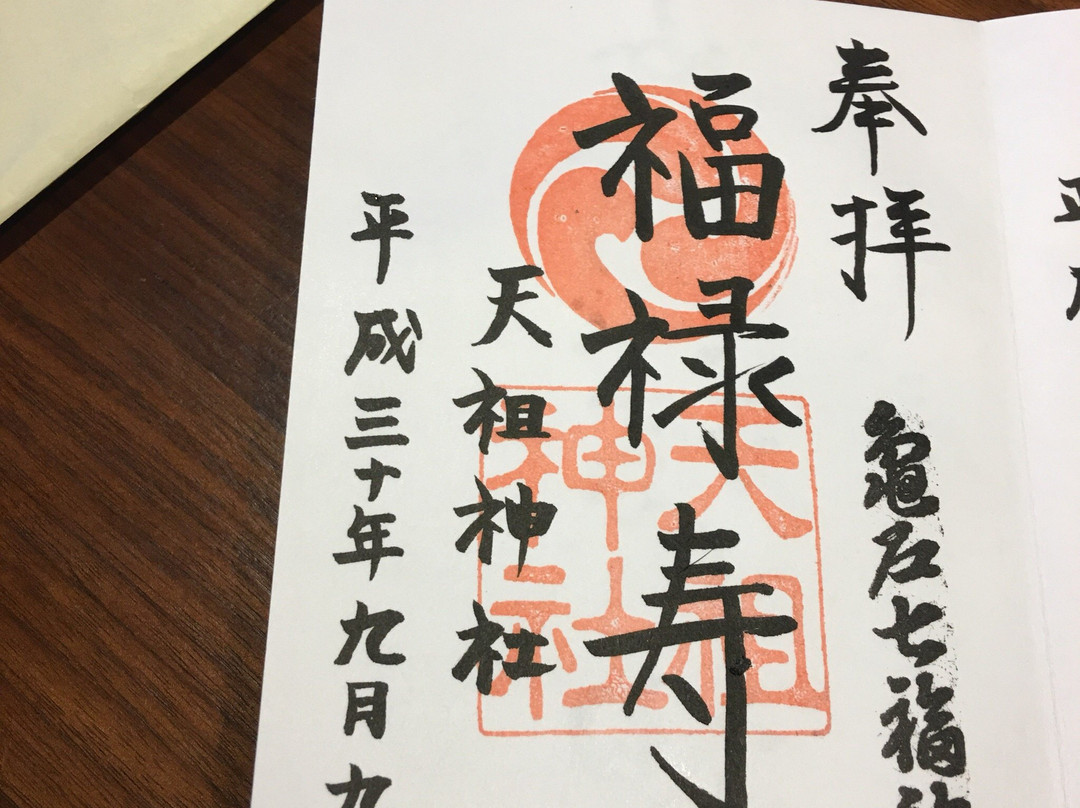 奉拝
亀戸七福
福禄寿
天祖神社
天祖神社
平成三十年九月九